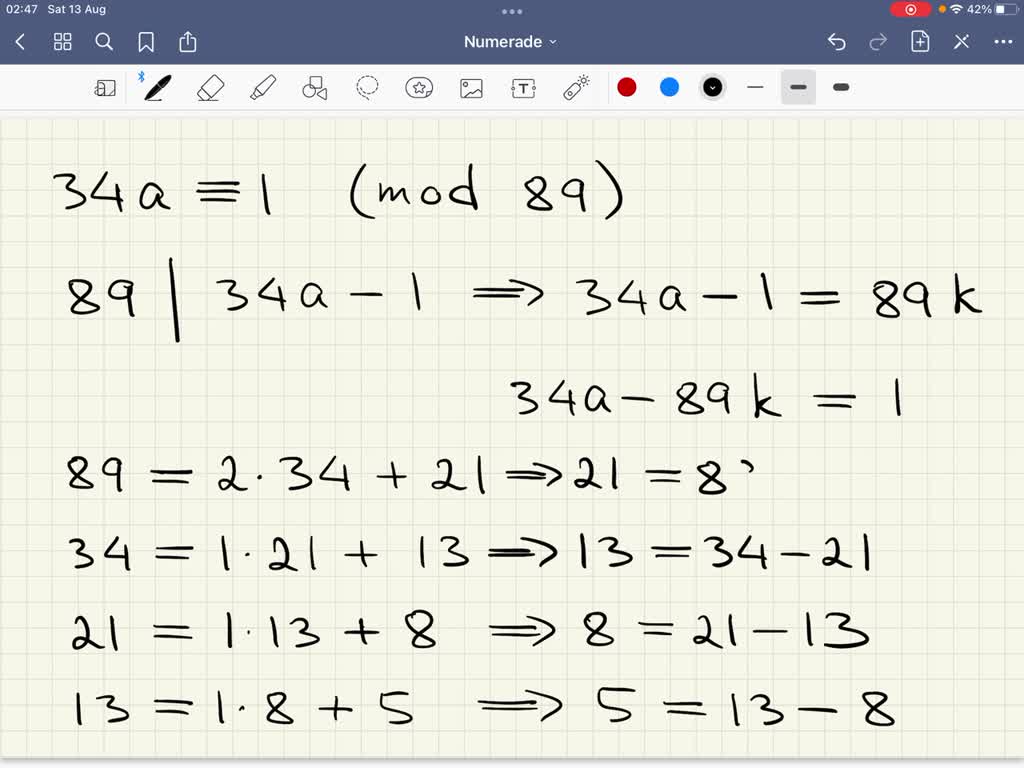 02:47 Sat 13 Aug 42%
Numerade
34a ≡ 1 (mod 89)
89 | 34a - 1 ⟹ 34a - 1 = 89k
34a - 89k = 1
89 = 2·34 + 21 ⟹ 21 = 8
34 = 1·21 + 13 ⟹ 13 = 34 - 21
21 = 1·13 + 8 ⟹ 8 = 21 - 13
13 = 1·8 + 5 ⟹ 5 = 13 - 8